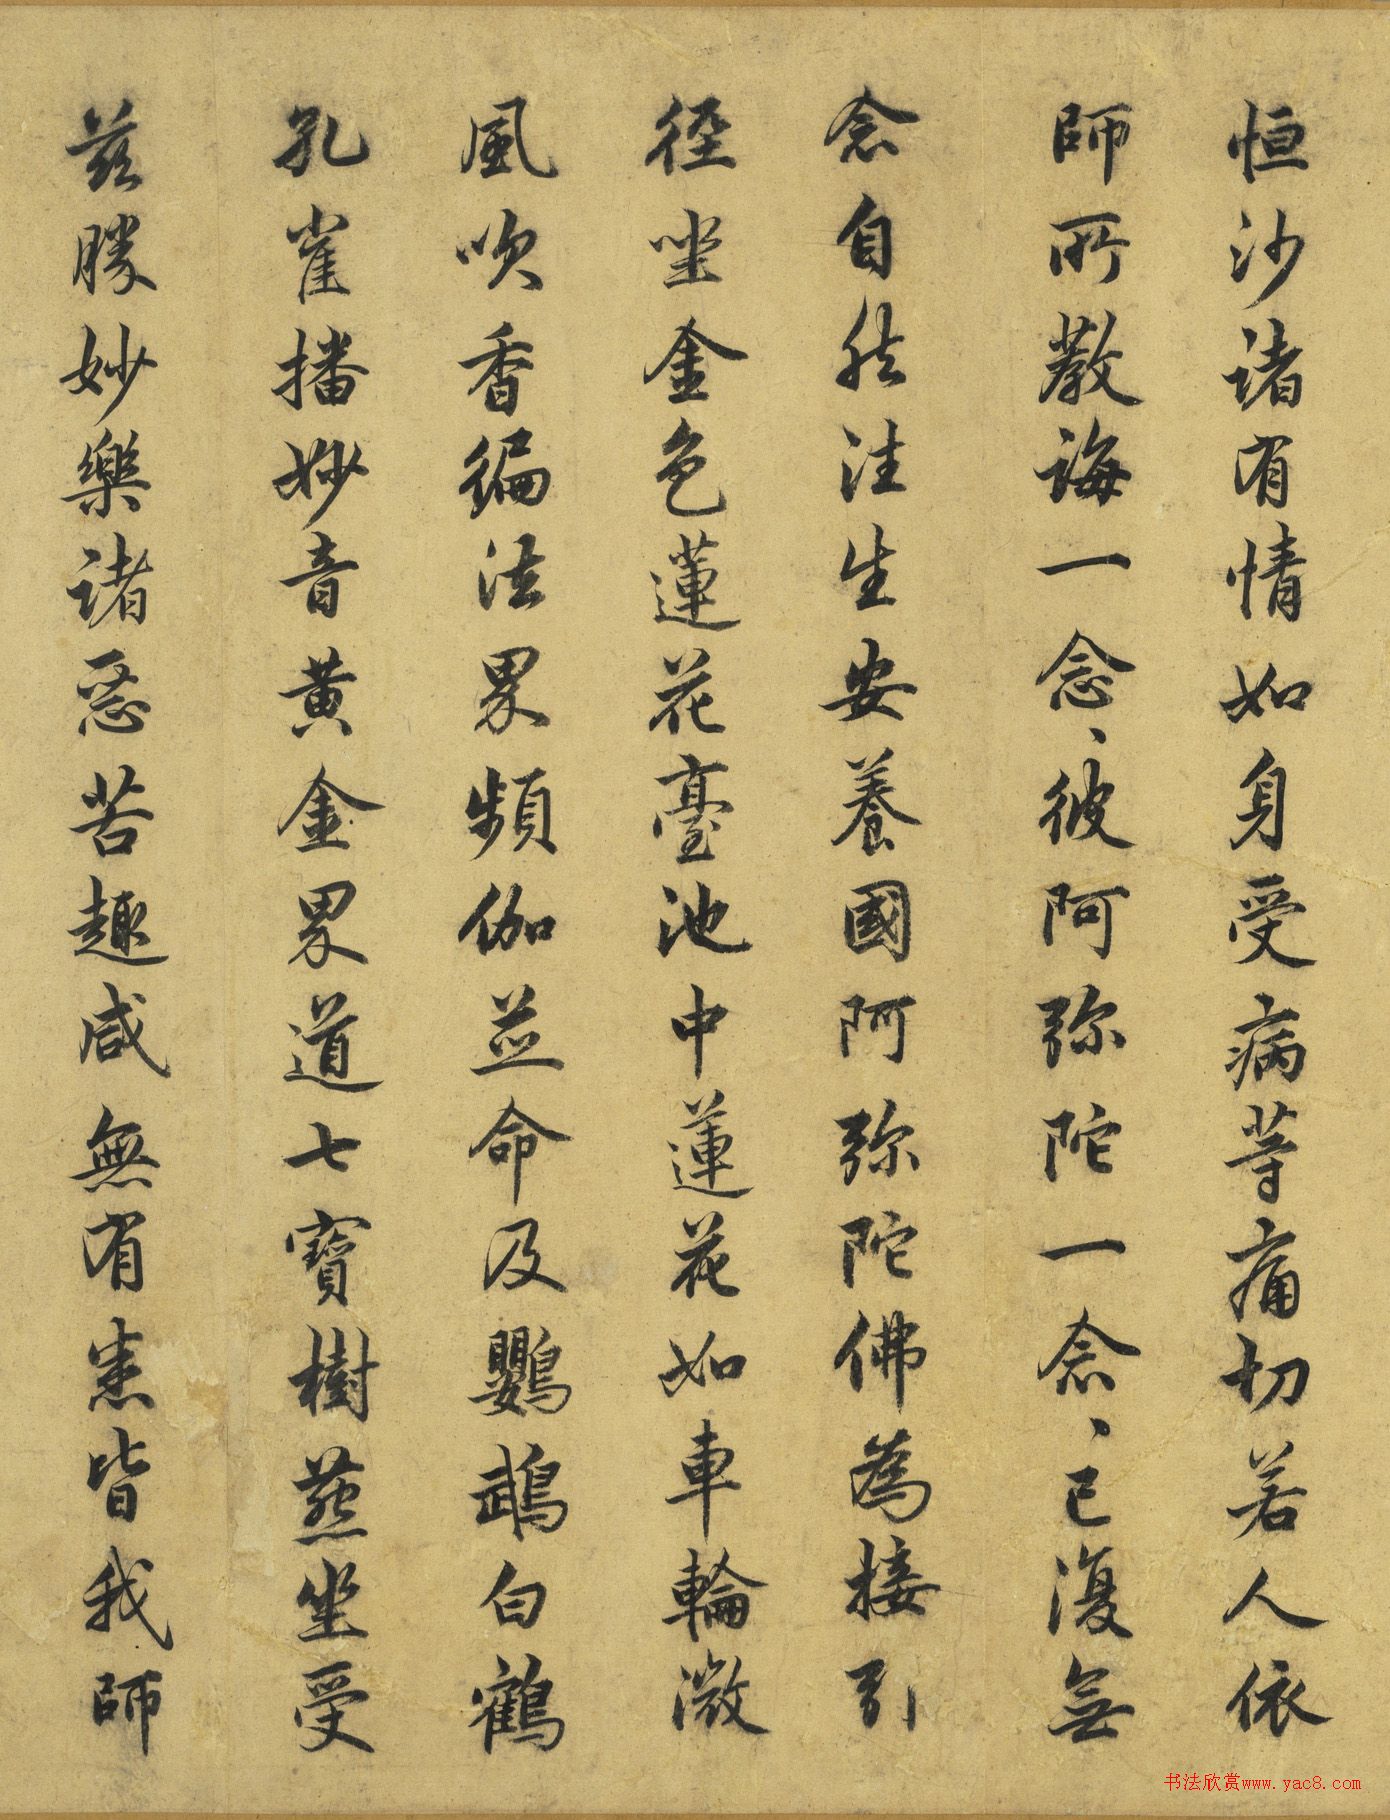 恒沙诸有情如身受病苦等痛切若人依
師所教誨一念、彼阿弥陀一念、已復無
念自然注生安養國阿弥陀佛為接引
径坐金色蓮花臺池中蓮花如車輪微
風吹香徧法界頻伽並命及鸚鵡白鶴
孔雀播妙音黄金界道七寶樹燕坐受
兹勝妙樂诸惡苦趣咸無有悉皆我師
书法欣赏www.yac8.com